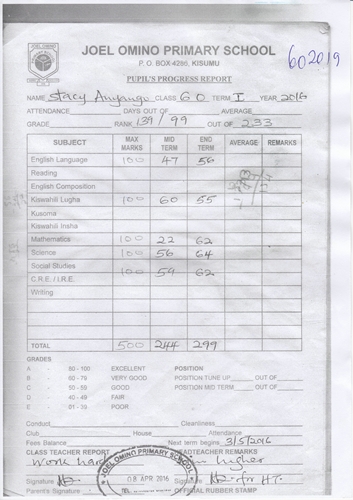 JOEL OMINO PRIMARY SCHOOL
P. O. BOX-4286, KISUMU
602019
PUPIL'S PROGRESS REPORT
NAME Stacy Anyango CLASS 6 O TERM I YEAR 2016
ATTENDANCE DAYS OUT OF AVERAGE
GRADE RANK 139 / 99 OUT OF 233
SUBJECT MAX MARKS MID TERM END TERM AVERAGE REMARKS
English Language 100 47 56
Reading
English Composition
Kiswahili Lugha 100 60 55
Kusoma
Kiswahili Insha
Mathematics 100 22 62
Science 100 56 64
Social Studies 100 59 62
C.R.E. / I.R.E.
Writing
TOTAL 500 244 299
GRADES
A - 80 - 100 EXCELLENT POSITION
B - 60 - 79 VERY GOOD POSITION TUNE UP OUT OF
C - 50 - 59 GOOD POSITION MID TERM OUT OF
D - 40 - 49 FAIR
E - 01 - 39 POOR
Conduct Cleanliness
Club House Attendance
Fees Balance Next term begins 3/5/2016
CLASS TEACHER REPORT HEADTEACHER REMARKS
Work hard higher
JOEL OMINO PRIMARY SCHOOL
08 APR 2016
TEL
Signature Signature
Parent's Signature OFFICIAL RUBBER STAMP